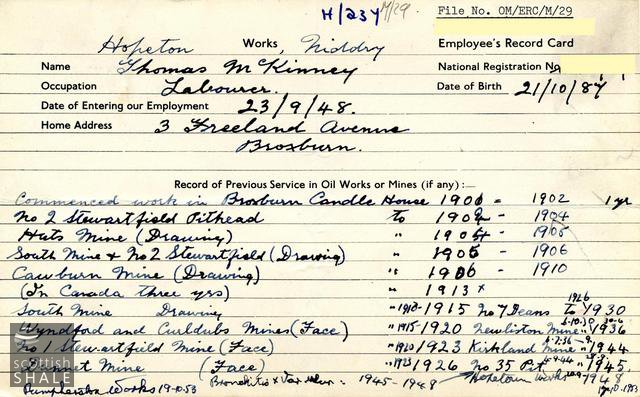 H/234 M/29
File No. OM/ERC/M/29
Hopeton Works, Niddry
Employee's Record Card
Name Thomas McKinney
National Registration No
Occupation Labourer.
Date of Birth 21/10/87
Date of Entering our Employment 23/9/48.
Home Address 3 Freeland Avenue
Broxburn.
Record of Previous Service in Oil Works or Mines (if any):—
Commenced work in Broxburn Candle House 1901 = 1902 1 yr
No 2 Stewartfield Pithead to 1902 - 1904
Huts Mine (Drawing) " 1904 - 1905
South Mine & No 2 Stewartfield (Drawing) " 1905 - 1906
Cawburn Mine (Drawing) " 1906 - 1910
(In Canada three yrs) " 1913 x
South Mine Drawing " 1913 - 1915 No 7 Deans 1926 To 1930
Wyndford and Curldubs Mines (Face) " 1915 - 1920 Newliston Mine " 1936
No 1 Stewartfield Mine (Face) " 1920 1923 Kirkland Mine " 1944
Mine (Face) " 1923 1926 No 35 Pit " 1945
Pumpherston Works 19-10-53 Bronchitis & 1945 - 1948 Hopetoun Works 1948
scottish
SHALE